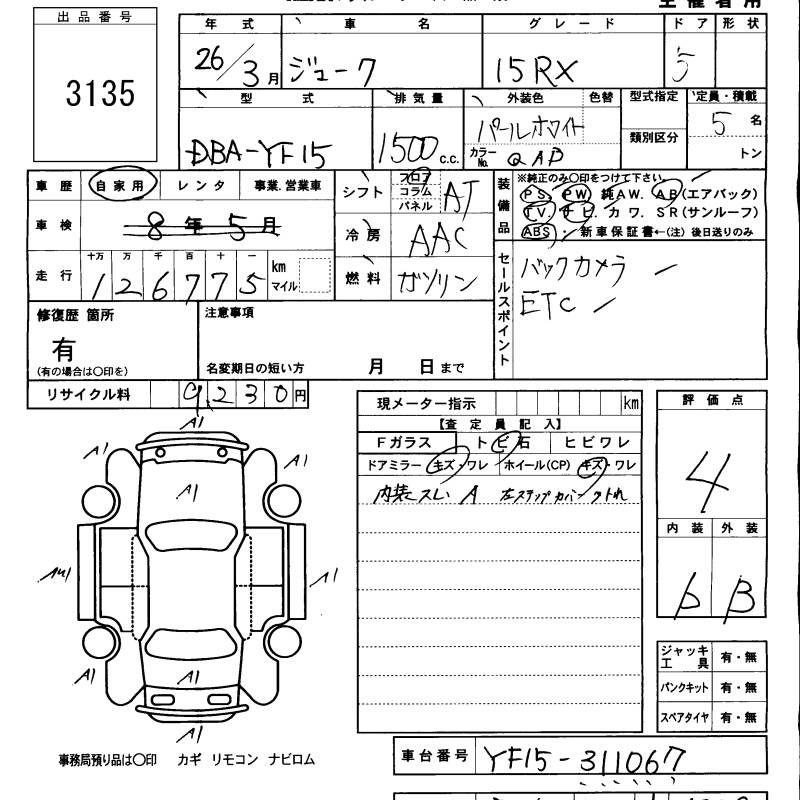 主催者用
出品番号
3135
年式 車名 グレード ドア 形状
26/3月 ジューク 15RX 5
型式 排気量 外装色 色替 型式指定 定員・積載
DBA-YF15 1500c.c. パールホワイト 5名
カラーNo. QAB 類別区分 トン
車歴 自家用 レンタ 事業.営業車
車検 8年5月
走行 十万 万 千 百 十 一
126775 km マイル
シフト フロア コラム パネル AT
冷房 AAC
燃料 ガソリン
装備品
※純正のみ〇印をつけて下さい。
PS. PW 純AW. AB(エアバック)
TV. ナビ. カワ. SR(サンルーフ)
ABS. 新車保証書←(注) 後日送りのみ
セールスポイント
バックカメラ
ETC
修復歴 箇所
有
(有の場合は〇印を)
注意事項
名変期日の短い方 月 日まで
リサイクル料 9,230円
現メーター指示 km
【査定員記入】
Fガラス トビ石 ヒビワレ
ドアミラー キズ・ワレ ホイール(CP) キズ・ワレ
内装スレ A 左ステップカバー ツメ折れ
評価点
4
内装 外装
b B
A1
A1 A1
A1
A1
A1
A1 A1
A1
ジャッキ工具 有・無
パンクキット 有・無
スペアタイヤ 有・無
事務局預り品は〇印 カギ リモコン ナビロム
車台番号 YF15-311067